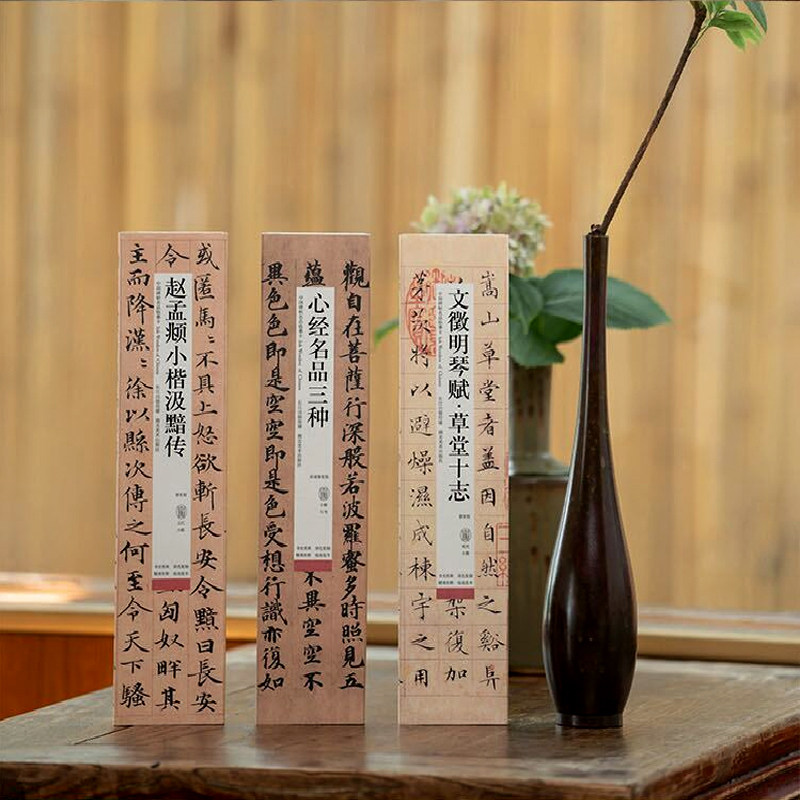 或匿馬〻不具上怒欲斬長安令黯曰長安
令
赵孟頫小楷汲黯传
匈奴畔其
主而降漢〻徐以縣次傳之何至令天下騷
觀自在菩薩行深般若波羅蜜多時照見五
蘊
心经名品三种
不異空空不
異色色即是空空即是色受想行識亦復如
嵩山草堂者盖因自然之谿阜
文徵明琴赋·草堂十志
架復加
茅茨将以避燥濕成棟宇之用